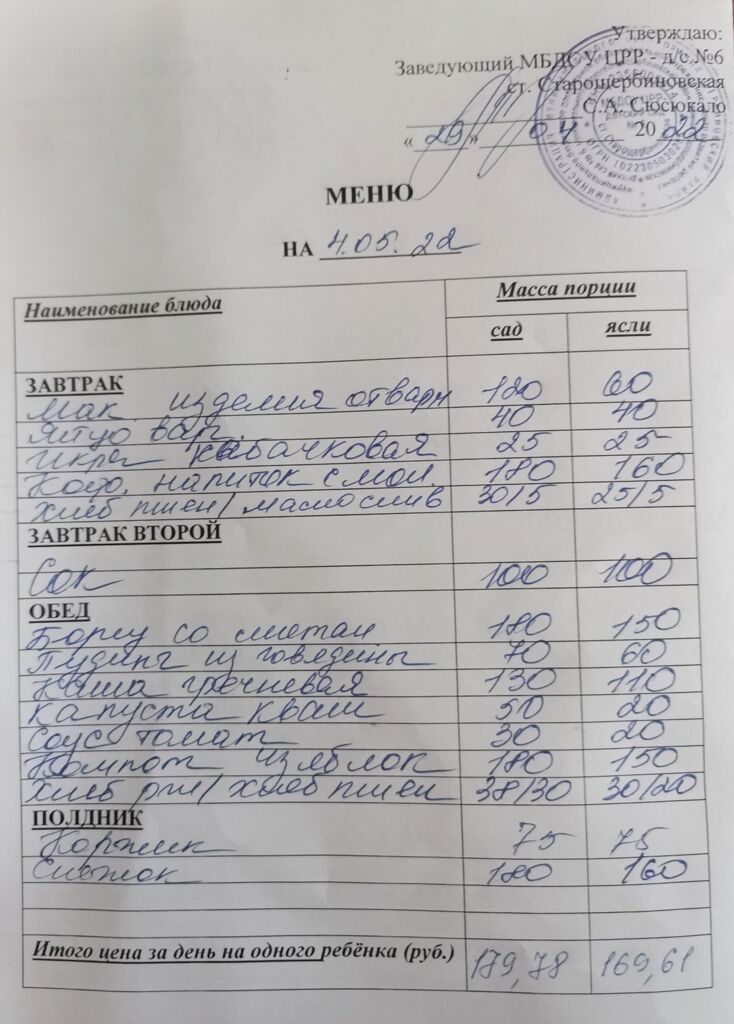 Утверждаю:
Заведующий МБДОУ ЦРР - д/с №6
ст. Старощербиновская
С.А. Сюсюкало
« 29 » 04 20 22
МЕНЮ
НА 4.05.22
Наименование блюда Масса порции
сад ясли
ЗАВТРАК
Мак изделия отварн 120 60
Яйцо вар. 40 40
Икра кабачковая 25 25
Кофе. напиток с мол. 180 160
Хлеб пшен/ масло слив 30/5 25/5
ЗАВТРАК ВТОРОЙ
Сок 100 100
ОБЕД
Борщ со сметан 180 150
Пудинг из говядины 70 60
Каша гречневая 130 110
Капуста кваш 50 20
Соус томат 30 20
Компот из яблок 180 150
Хлеб рж/ хлеб пшен 38/30 30/20
ПОЛДНИК
Коржик 75 75
Снежок 180 160
Итого цена за день на одного ребёнка (руб.) 179,78 169,61